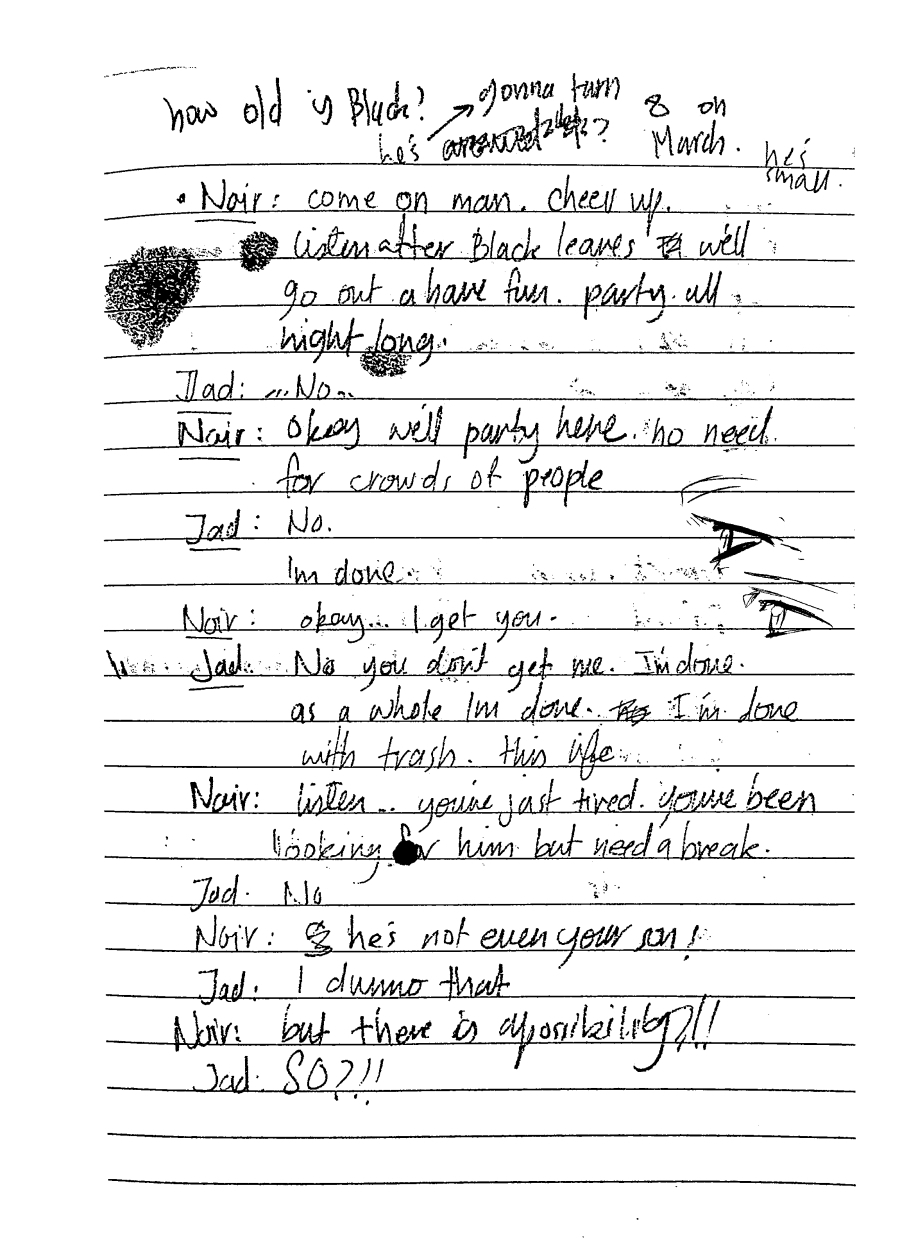 how old is Black? → gonna turn 8 on
he's March. he's
small.
• Noir: come on man. cheer up.
listen after Black leaves we'll
go out a have fun. party all
night long.
Jad: ...No...
Noir: Okay we'll party here. no need
for crowds of people
Jad: No.
Im done.
Noir: okay... I get you.
Jad No you don't get me. I'm done.
as a whole Im done. I'm done
with trash. this life
Noir: listen.. you're just tired. youve been
looking for him but need a break.
Jad. No
Noir: he's not even your son!
Jad: I dunno that
Noir: but there is a possibility?!!
Jad: SO?!!